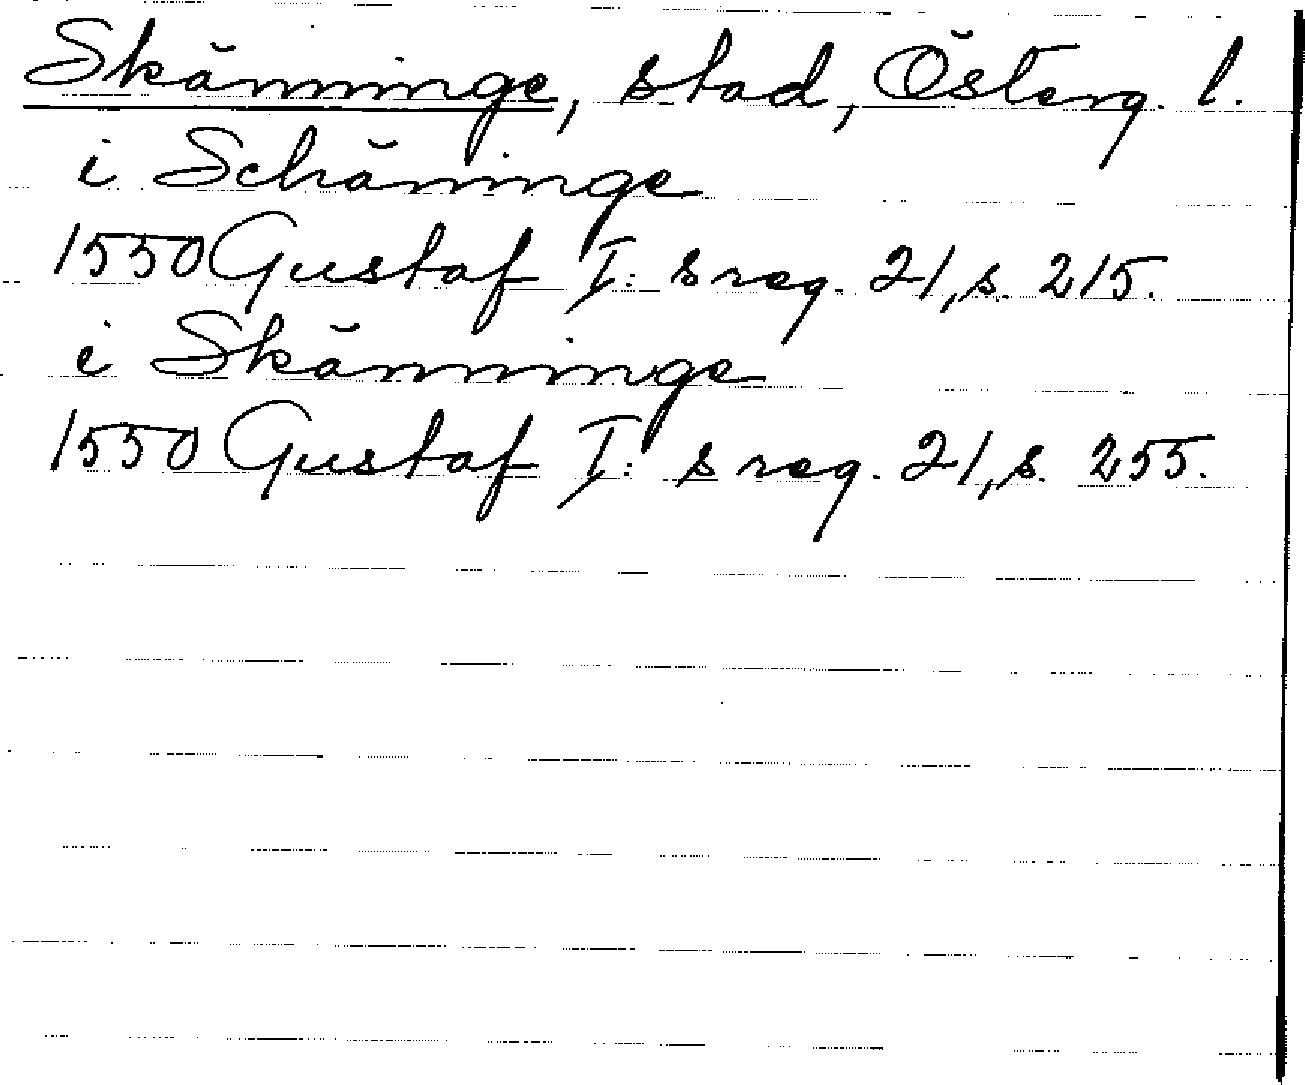 Skänninge, stad, Österg. l.
i Schäninge
1550 Gustaf I: s reg. 21, s. 215.
i Skänninge
1550 Gustaf I: s reg. 21, s. 255.